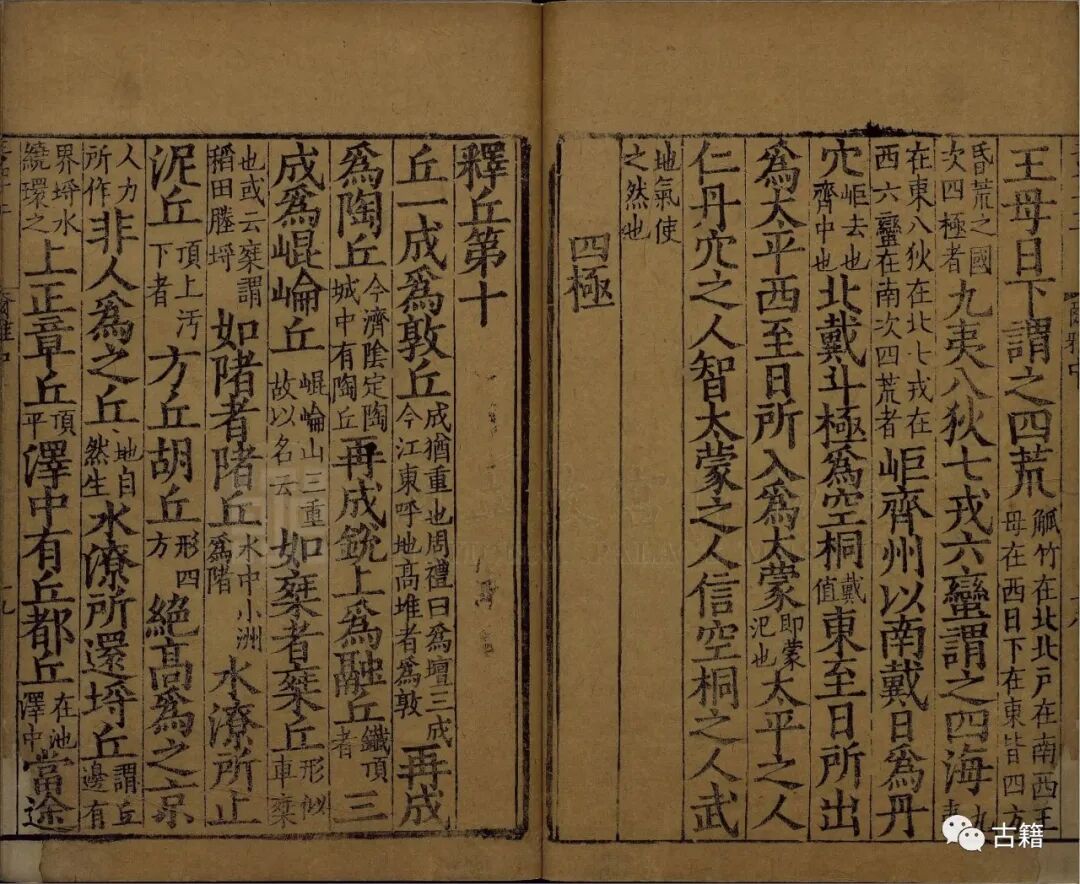 王母日下謂之四荒觚竹在北北戸在南西王母在西日下在東皆四方
昏荒之國次四極者九夷八狄七戎六蠻謂之四海九夷
在東八狄在北七戎在西六蠻在南次四荒者岠齊州以南戴日為丹
穴岠去也齊中也北戴斗極為空桐戴值東至日所出
為太平西至日所入為太蒙即蒙汜也太平之人
仁丹穴之人智太蒙之人信空桐之人武
地氣使之然也
四極
釋丘第十
丘一成為敦丘成猶重也周禮曰為壇三成今江東呼地高堆者為敦再成
為陶丘今濟陰定陶城中有陶丘再成銳上為融丘鐵頂者三
成為崐崘丘崐崘山三重故以名云如椉者椉丘形似車椉
也或云椉謂稻田塍埒如陼者陼丘水中小洲為陼水潦所止
泥丘頂上汚下者方丘胡丘形四方絕高為之京
人力所作非人為之丘地自然生水潦所還埒丘謂丘邊有
界埒水繞環之上正章丘頂平澤中有丘都丘在池澤中當途
古籍